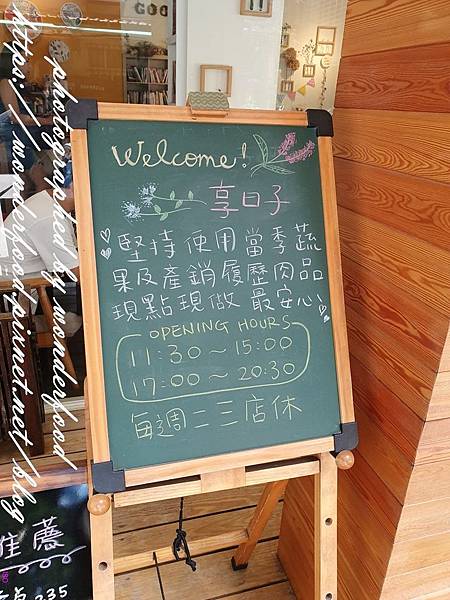 Welcome!
享日子
堅持使用當季蔬
果及產銷履歷肉品
現點現做 最安心
OPENING HOURS
11:30～15:00
17:00～20:30
每週二三店休
推薦
235
photographed by wonderfood
https://wonderfood.pixnet.net/blog